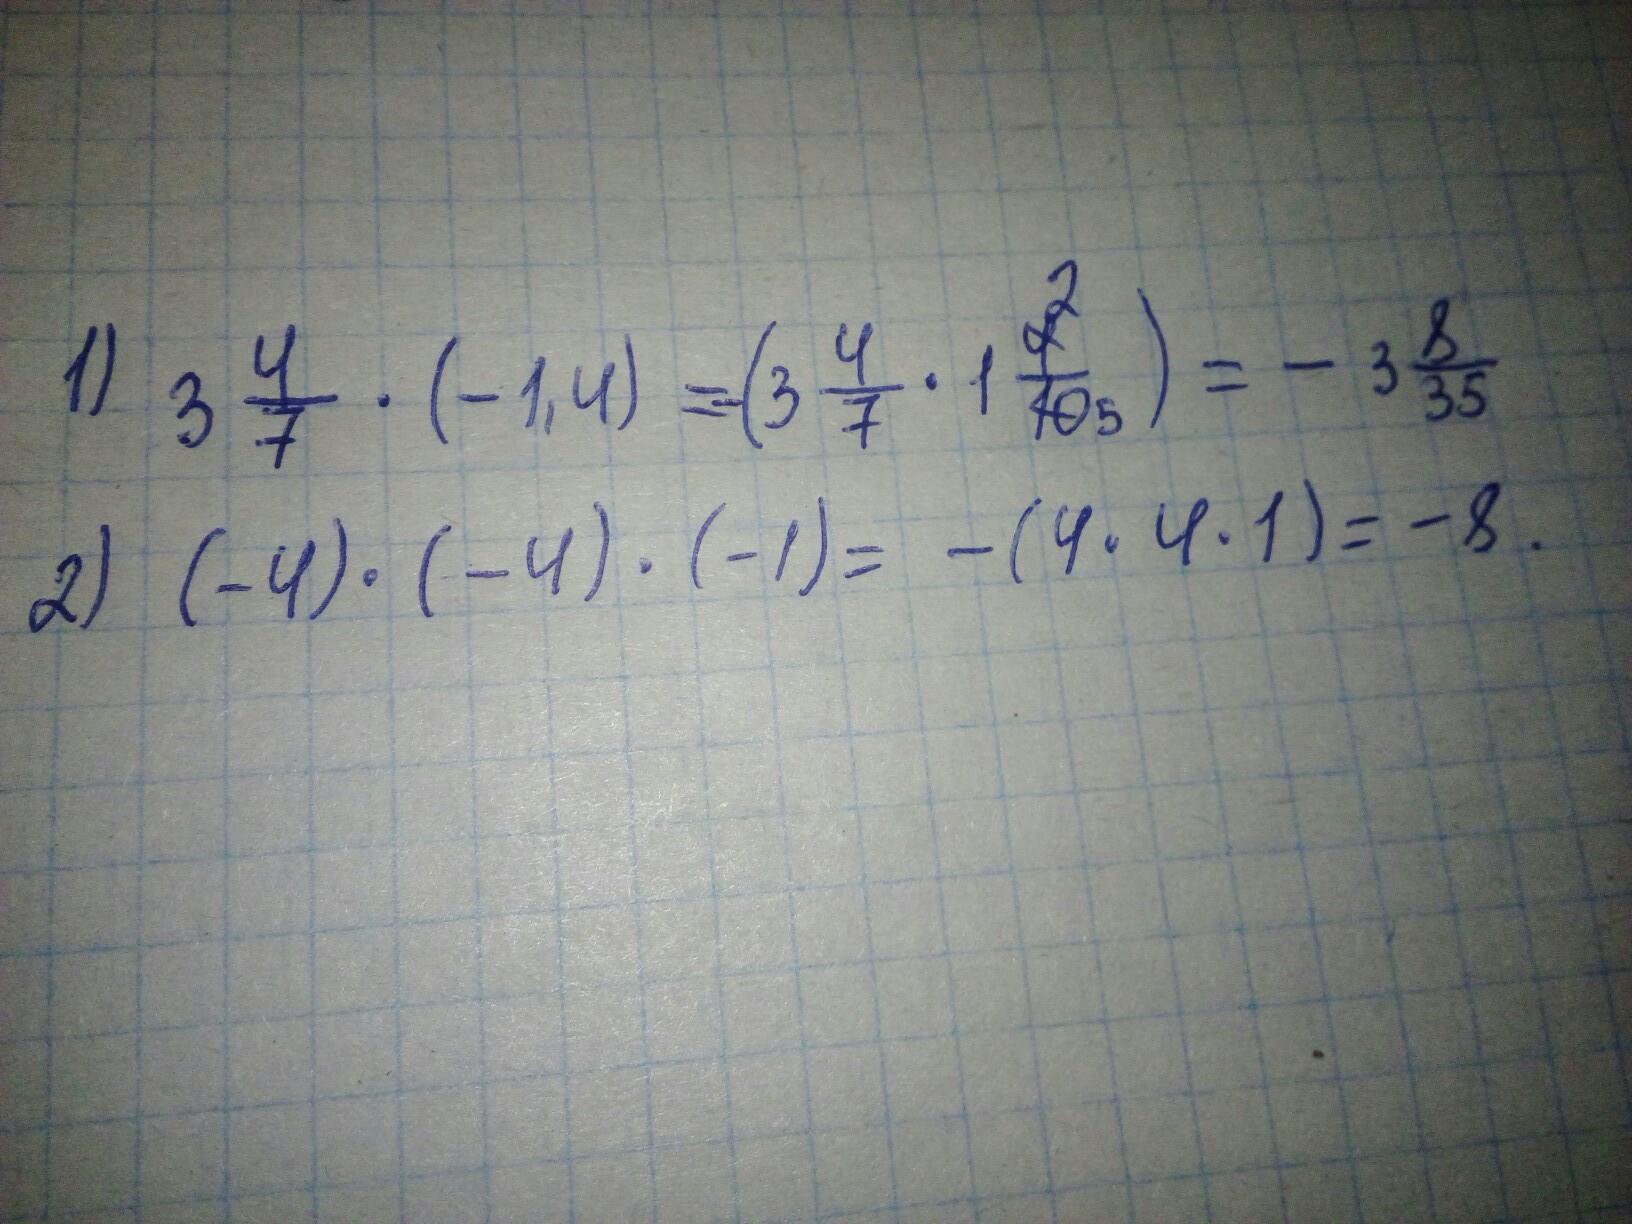 1) 3 4/7 · (-1,4) = -(3 4/7 · 1 4/10 2 5) = - 3 8/35
2) (-4) · (-4) · (-1) = -(4 · 4 · 1) = -8.